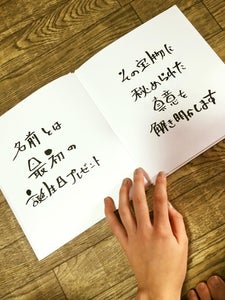 名前とは
最初の
誕生日プレゼント
その宝物に
秘めじれた
真意を
解き明かします